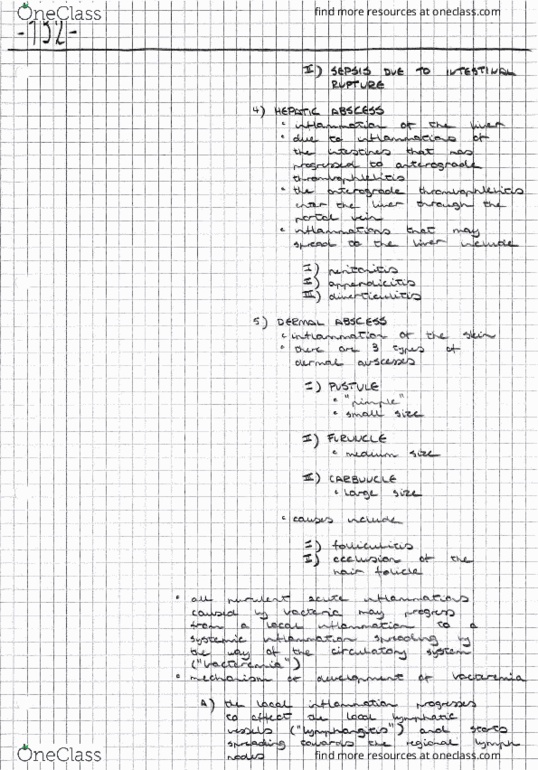 OneClass
find more resources at oneclass.com
-132-
II) SEPSIS DUE TO INTESTINAL
RUPTURE
4) HEPATIC ABSCESS
• inflammation of the liver
• due to inflammations of
the intestines that has
progressed to anterograde
thrombophlebitis
• the anterograde thrombophlebitis
enter the liver through the
portal vein
• inflammations that may
spread to the liver include
I) peritonitis
II) appendicitis
III) diverticulitis
5) DERMAL ABSCESS
• inflammation of the skin
• there are 3 types of
dermal abscesses
I) PUSTULE
• "pimple"
• small size
II) FURUNCLE
• medium size
III) CARBUNCLE
• large size
• causes include
I) folliculitis
II) occlusion of the
hair folicle
• all purulent acute inflammations
caused by bacteria may progress
from a local inflammation to a
systemic inflammation spreading by
the way of the circulatory system
("bacteremia")
• mechanism of development of bacteremia
A) the local inflammation progresses
to affect the local lymphatic
vessels ("lymphangitis") and starts
spreading towards the regional lymph
nodes
OneClass
find more resources at oneclass.com